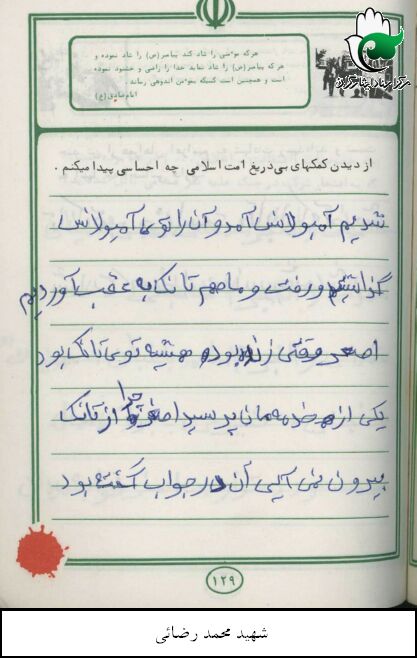 هر که مؤمنی را شاد کند پیامبر (ص) را شاد نموده و
هر که پیامبر (ص) را شاد نماید خدا را راضی و خشنود نموده
است و همچنین است کسیکه بمؤمن اندوهی رساند.
امام صادق (ع)
مرکز اسناد ایثارگران
از دیدن کمکهای بی دریغ امت اسلامی چه احساسی پیدا میکنم.
شدیم آمبولانس آمد و آن را توی آمبولانس
گذاشتیم و رفت و ما هم تانک به عقب آوردیم
اصغر وقتی زنده بود همیشه توی تانک بود
یکی از خدمه مان پرسید اصغر چرا از تانک
بیرون نمی آیی آن در جواب گفته بود
۱۲۹
شهید محمد رضائی